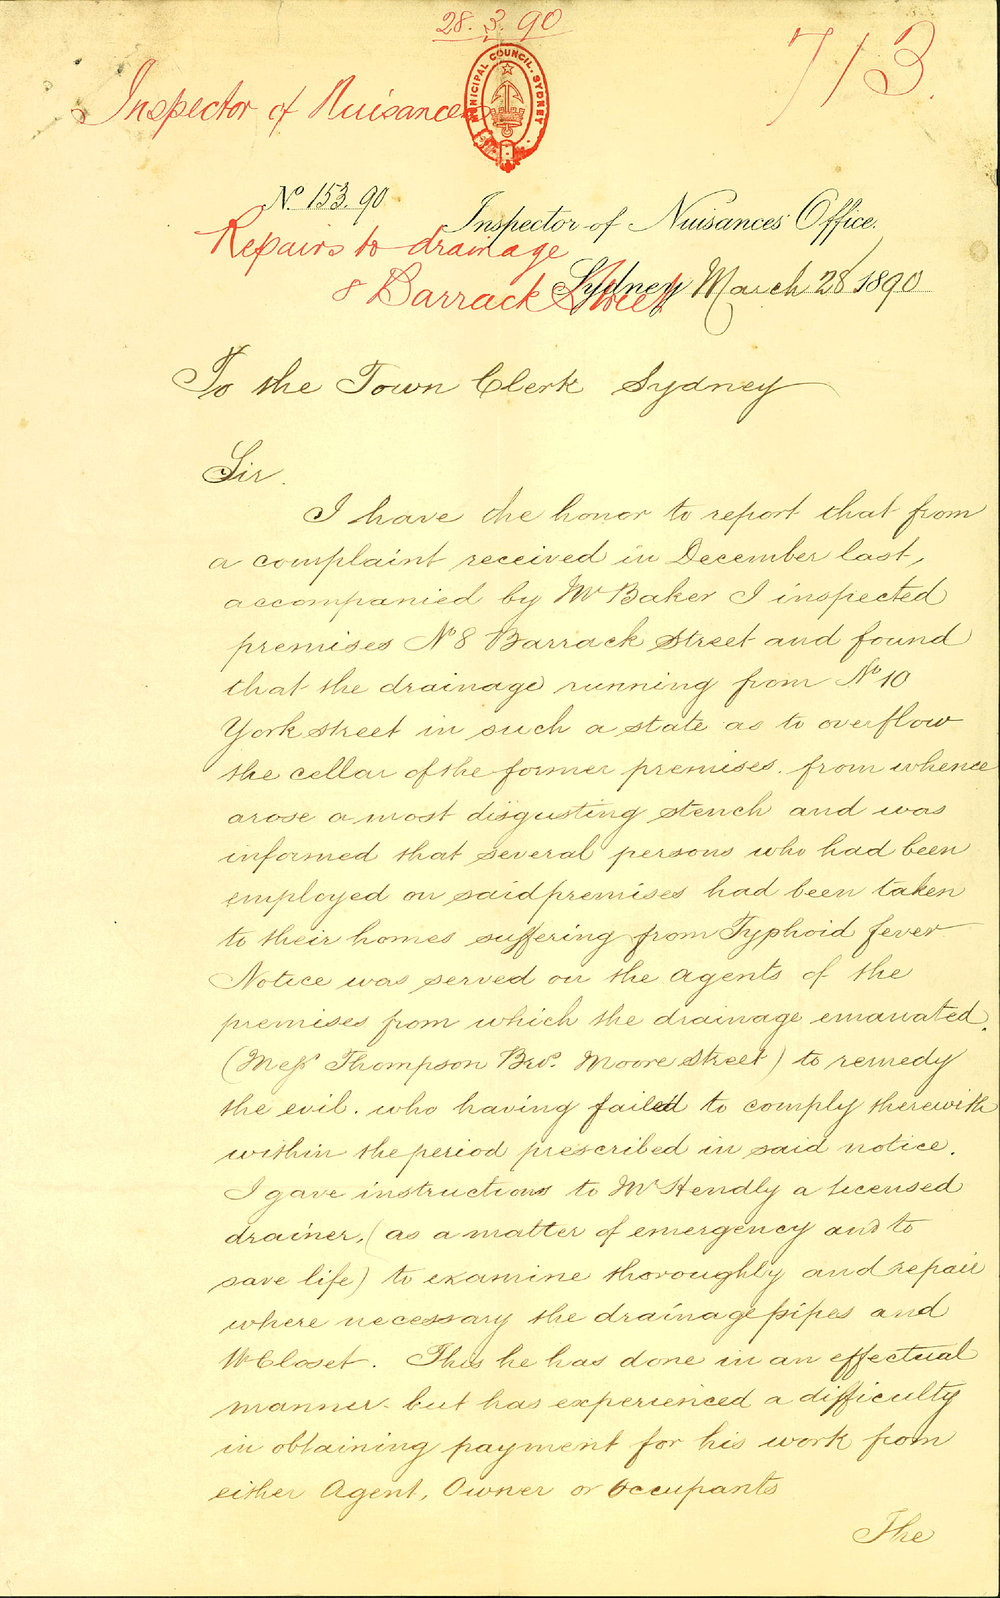 28.3.90
713.
Inspector of Nuisances
MUNICIPAL COUNCIL. SYDNEY
No. 153.90
Inspector of Nuisances' Office.
Repairs to drainage
8 Barrack Street
Sydney March 28 1890
To the Town Clerk Sydney
Sir.
I have the honor to report that from
a complaint received in December last,
accompanied by Mr Baker I inspected
premises No 8 Barrack Street and found
that the drainage running from No 10
York street in such a state as to overflow
the cellar of the former premises. from whence
arose a most disgusting stench and was
informed that several persons who had been
employed on said premises had been taken
to their homes suffering from Typhoid fever
Notice was served on the agents of the
premises from which the drainage emanated.
(Mess Thompson Bros. Moore Street) to remedy
the evil. who having failed to comply therewith
within the period prescribed in said notice.
I gave instructions to Mr Hendly a licensed
drainer, (as a matter of emergency and to
save life) to examine thoroughly and repair
where necessary the drainage pipes and
W Closet. This he has done in an effectual
manner. but has experienced a difficulty
in obtaining payment for his work from
either Agent, Owner or Occupants
The